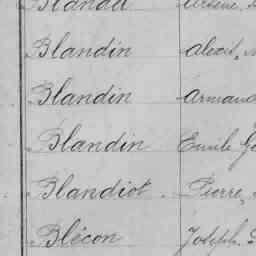 Blandin
Blandin Armand
Blandin Emile
Blandiot Pierre,
Blécon Joseph